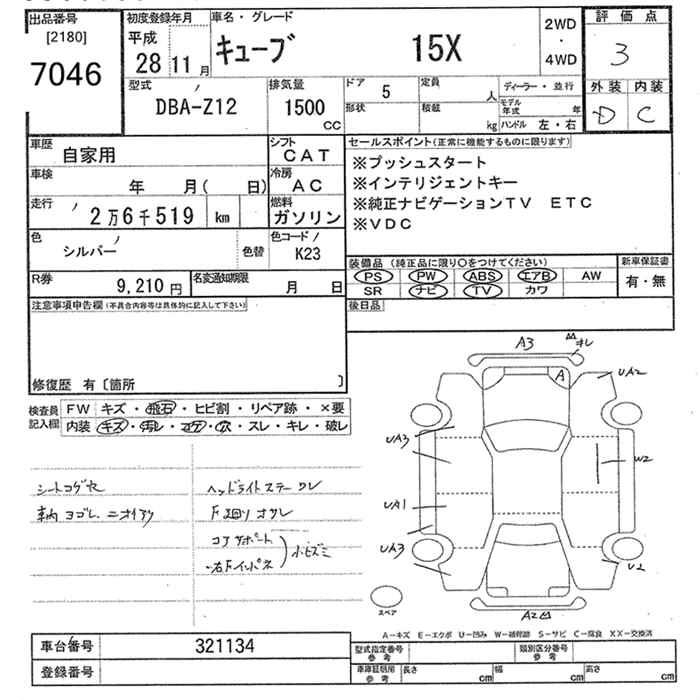 出品番号 初度登録年月 車名・グレード 2WD 評価点
[2180] 平成 キューブ 15X ・ 3
7046 28 11月 4WD
型式 排気量 ドア 5 定員 人 ディーラー・並行 外装 内装
DBA-Z12 1500 cc 形状 積載 kg モデル年式 年 D C
ハンドル 左・右
車歴 自家用 シフト CAT セールスポイント(正常に機能するものに限ります)
車検 年 月( 日) 冷房 AC ※プッシュスタート
※インテリジェントキー
走行 2万6千519 km 燃料 ガソリン ※純正ナビゲーションTV ETC
※VDC
色 シルバー 色替 色コード K23
装備品(純正品に限り○をつけてください) 新車保証書
R券 9,210円 名変通知期限 月 日 PS PW ABS エアB AW 有・無
SR ナビ TV カワ
注意事項申告欄(不具合内容等は具体的に記入して下さい) 後日品
修復歴 有〔箇所 〕
検査員 FW キズ・飛石・ヒビ割・リペア跡・×要
記入欄 内装 キズ・汚レ・コゲ・穴・スレ・キレ・破レ
A3
A
UA2
UA3
W2
UA1
UA3
U2
シートコゲ ヘッドライトステー ワレ
車内 ヨゴレ ニオイアリ 下廻リ オサレ
コアサポート
小ヒズミ
スペア
A2
A-キズ E-エクボ U-凹み W-補修跡 S-サビ C-腐食 XX-交換済
車台番号 321134 型式指定番号 参考 類別区分番号 参考
登録番号 車庫証明用 参考 長さ cm 幅 cm 高さ cm